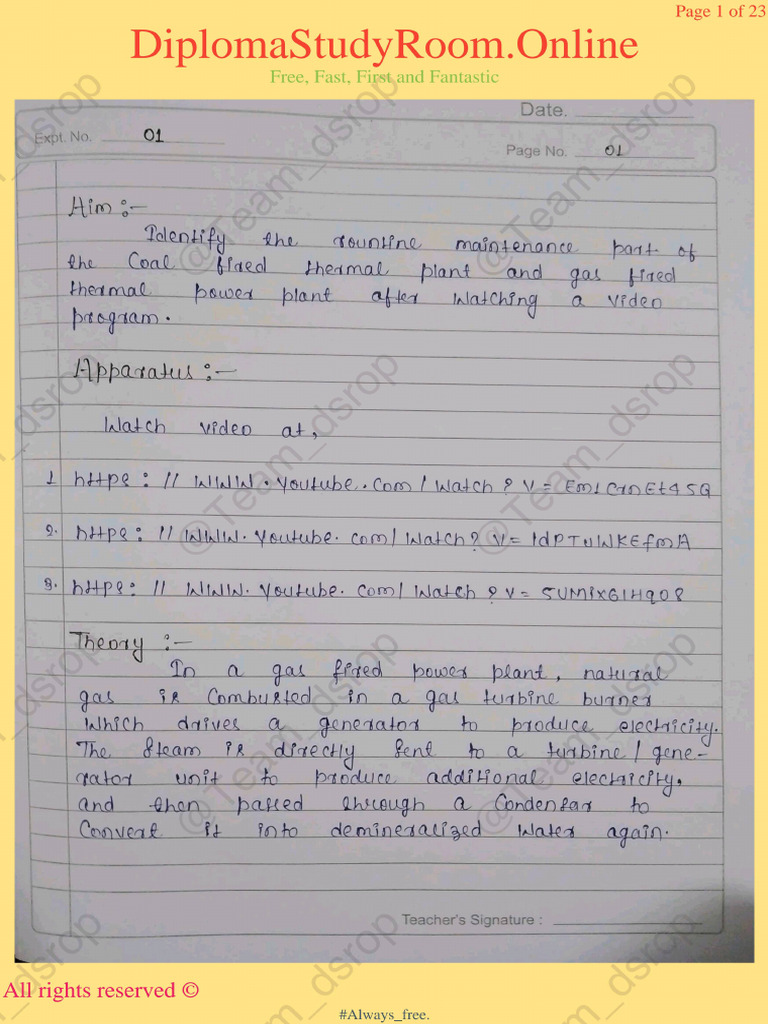 Page 1 of 23
DiplomaStudyRoom.Online
Free, Fast, First and Fantastic
Date.
Expt. No. 01
Page No. 01
Aim :-
Identify the rountine maintenance part of
the Coal fired thermal plant and gas fired
thermal power plant after watching a video
program.
Apparatus :-
Watch video at,
1. https : // www.youtube.com / watch ? v =
2. https : // www.youtube.com / watch ? v =
3. https : // www.youtube.com / watch ? v =
Theory :-
In a gas fired power plant, natural
gas is combusted in a gas turbine burner
which drives a generator to produce electricity.
The steam is directly sent to a turbine / gene-
rator unit to produce additional electricity,
and then passed through a Condensar to
Convert it into demineralized water again.
Teacher's Signature :
@Team_dsrop
All rights reserved ©
#Always_free.